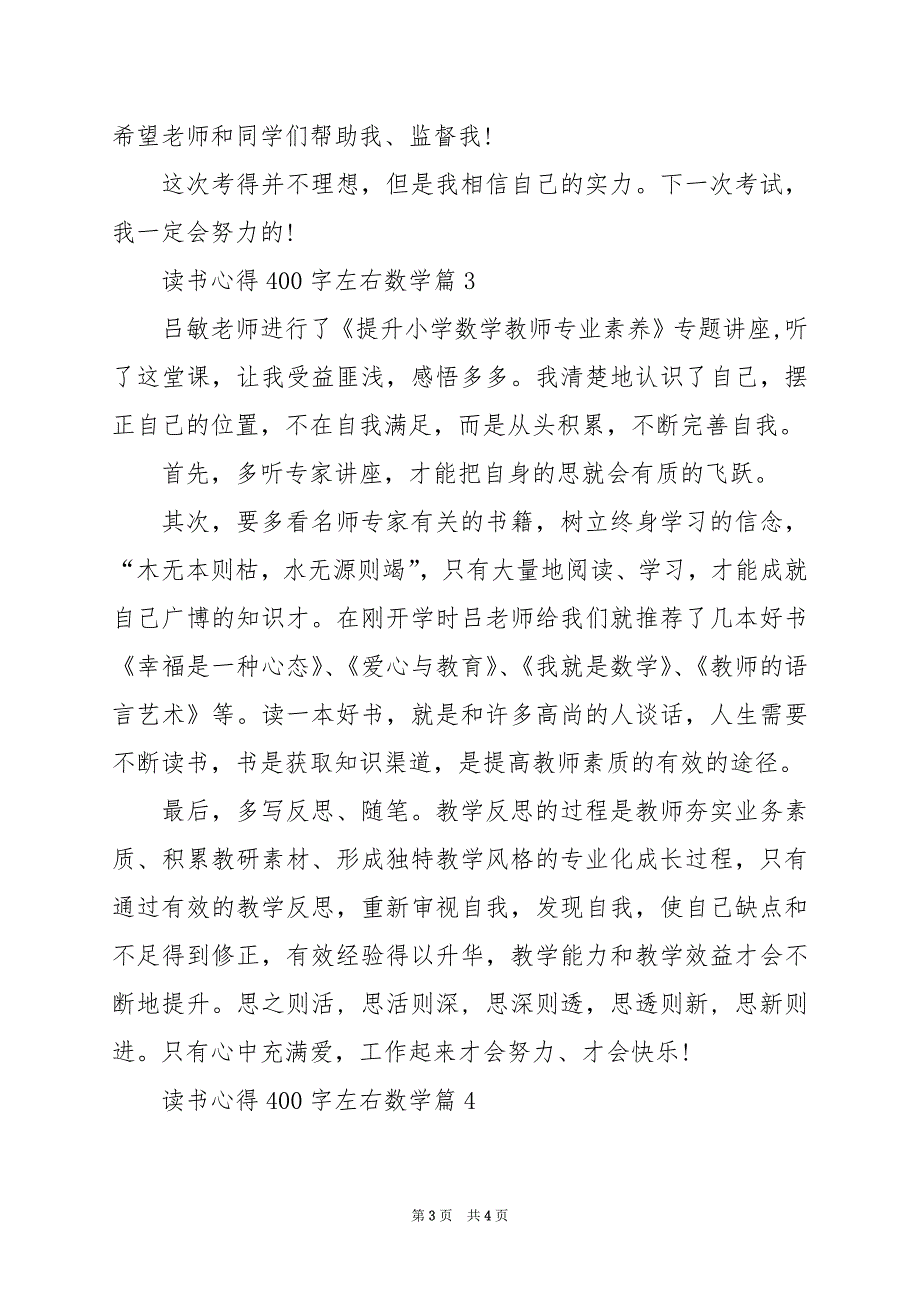 希望老师和同学们帮助我、监督我!
这次考得并不理想，但是我相信自己的实力。下一次考试，
我一定会努力的!
读书心得 400 字左右数学篇 3
吕敏老师进行了《提升小学数学教师专业素养》专题讲座,听
了这堂课，让我受益匪浅，感悟多多。我清楚地认识了自己，摆
正自己的位置，不在自我满足，而是从头积累，不断完善自我。
首先，多听专家讲座，才能把自身的思就会有质的飞跃。
其次，要多看名师专家有关的书籍，树立终身学习的信念，
“木无本则枯，水无源则竭”，只有大量地阅读、学习，才能成就
自己广博的知识才。在刚开学时吕老师给我们就推荐了几本好书
《幸福是一种心态》、《爱心与教育》、《我就是数学》、《教师的语
言艺术》等。读一本好书，就是和许多高尚的人谈话，人生需要
不断读书，书是获取知识渠道，是提高教师素质的有效的途径。
最后，多写反思、随笔。教学反思的过程是教师夯实业务素
质、积累教研素材、形成独特教学风格的专业化成长过程，只有
通过有效的教学反思，重新审视自我，发现自我，使自己缺点和
不足得到修正，有效经验得以升华，教学能力和教学效益才会不
断地提升。思之则活，思活则深，思深则透，思透则新，思新则
进。只有心中充满爱，工作起来才会努力、才会快乐!
读书心得 400 字左右数学篇 4
第 3 页 共 4 页